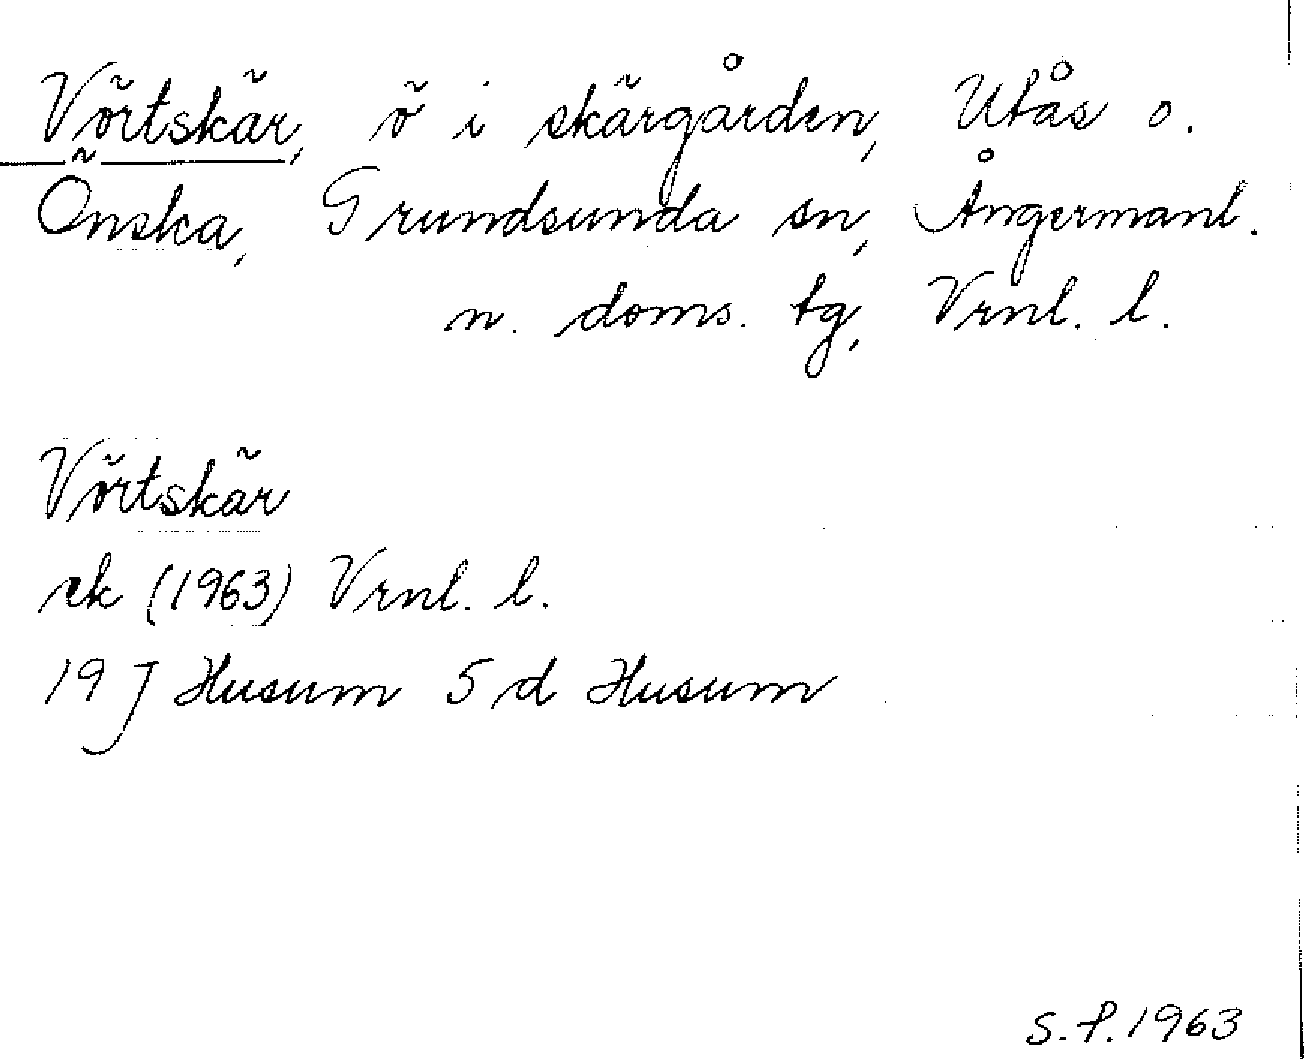 Vörtskär, ö i skärgården, Utås o.
Önska, Grundsunda sn, Ångermanl.
n. doms. tg, Vrnl. l.
Vörtskär
ek (1963) Vrnl. l.
19 J Husum 5 d Husum
S.P. 1963